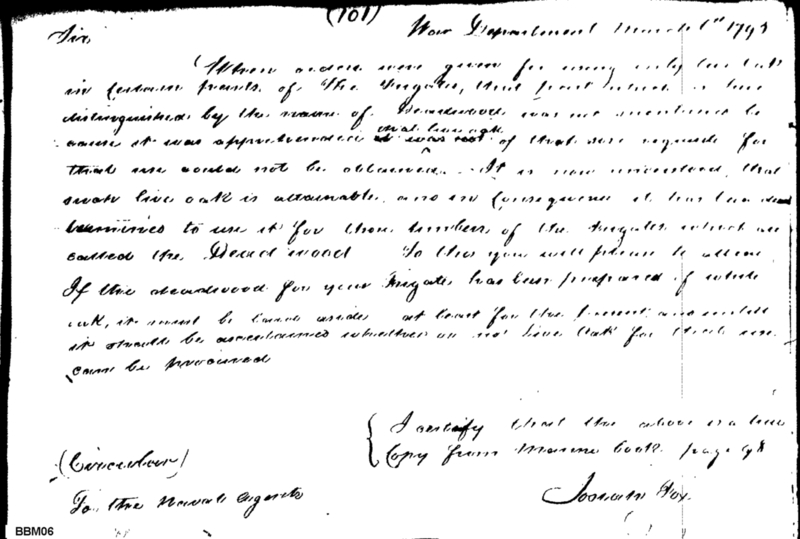 (101)
Sir, War Department March 1st 179
When orders were given for using only live oak
in certain parts of the Frigates, that part which is
distinguished by the name of Deadwood was not mentioned be
cause it was apprehended that live oak of that size requisite for
that use could not be obtained. It is now understood that
such live oak is attainable, and in consequence it has been de
termined to use it for those timbers of the Frigates which are
called the Dead wood To this you will please to attend
If the deadwood for your Frigate has been prepared of white
oak, it must be laid aside at least for the present and until
it should be ascertained whether or not live Oak for that use
can be procured
I certify that the above is a true
Copy from Marine book page 98
(Circular)
To the Naval Agents
Josiah Fox
BBM06